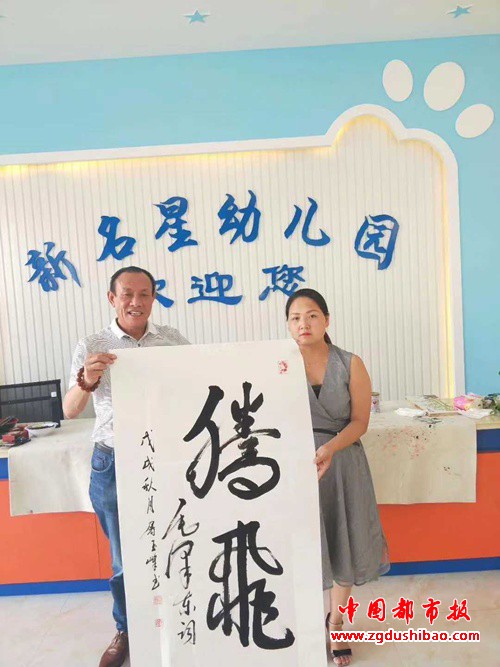 新名星幼儿园
欢迎您
腾飛
毛泽东词
戊戌秋月
中国都市报
www.zgdushibao.com